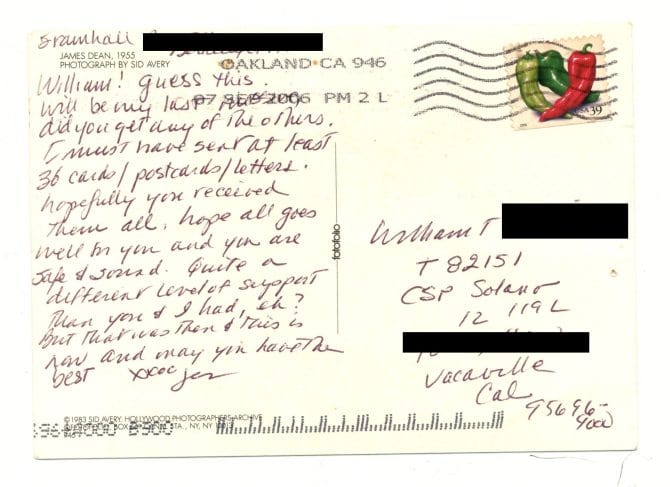 Bramhall
JAMES DEAN, 1955
PHOTOGRAPH BY SID AVERY
William! guess this
will be my last
did you get any of the others.
I must have sent at least
36 cards/postcards/letters.
hopefully you received
them all. hope all goes
well for you and you are
safe & sound. Quite a
different level of support
than you & I had, eh?
But that was then & this is
now and may you have the
best xxoc
©1983 SID AVERY: HOLLYWOOD PHOTOGRAPHERS ARCHIVE
BOX STA., NY, NY
OAKLAND CA 946
07 SEP 2006 PM 2 L
USA 39
fotofolio
William T
T 82151
CSP Solano
12 119L
Vacaville
Cal
95696-
4000